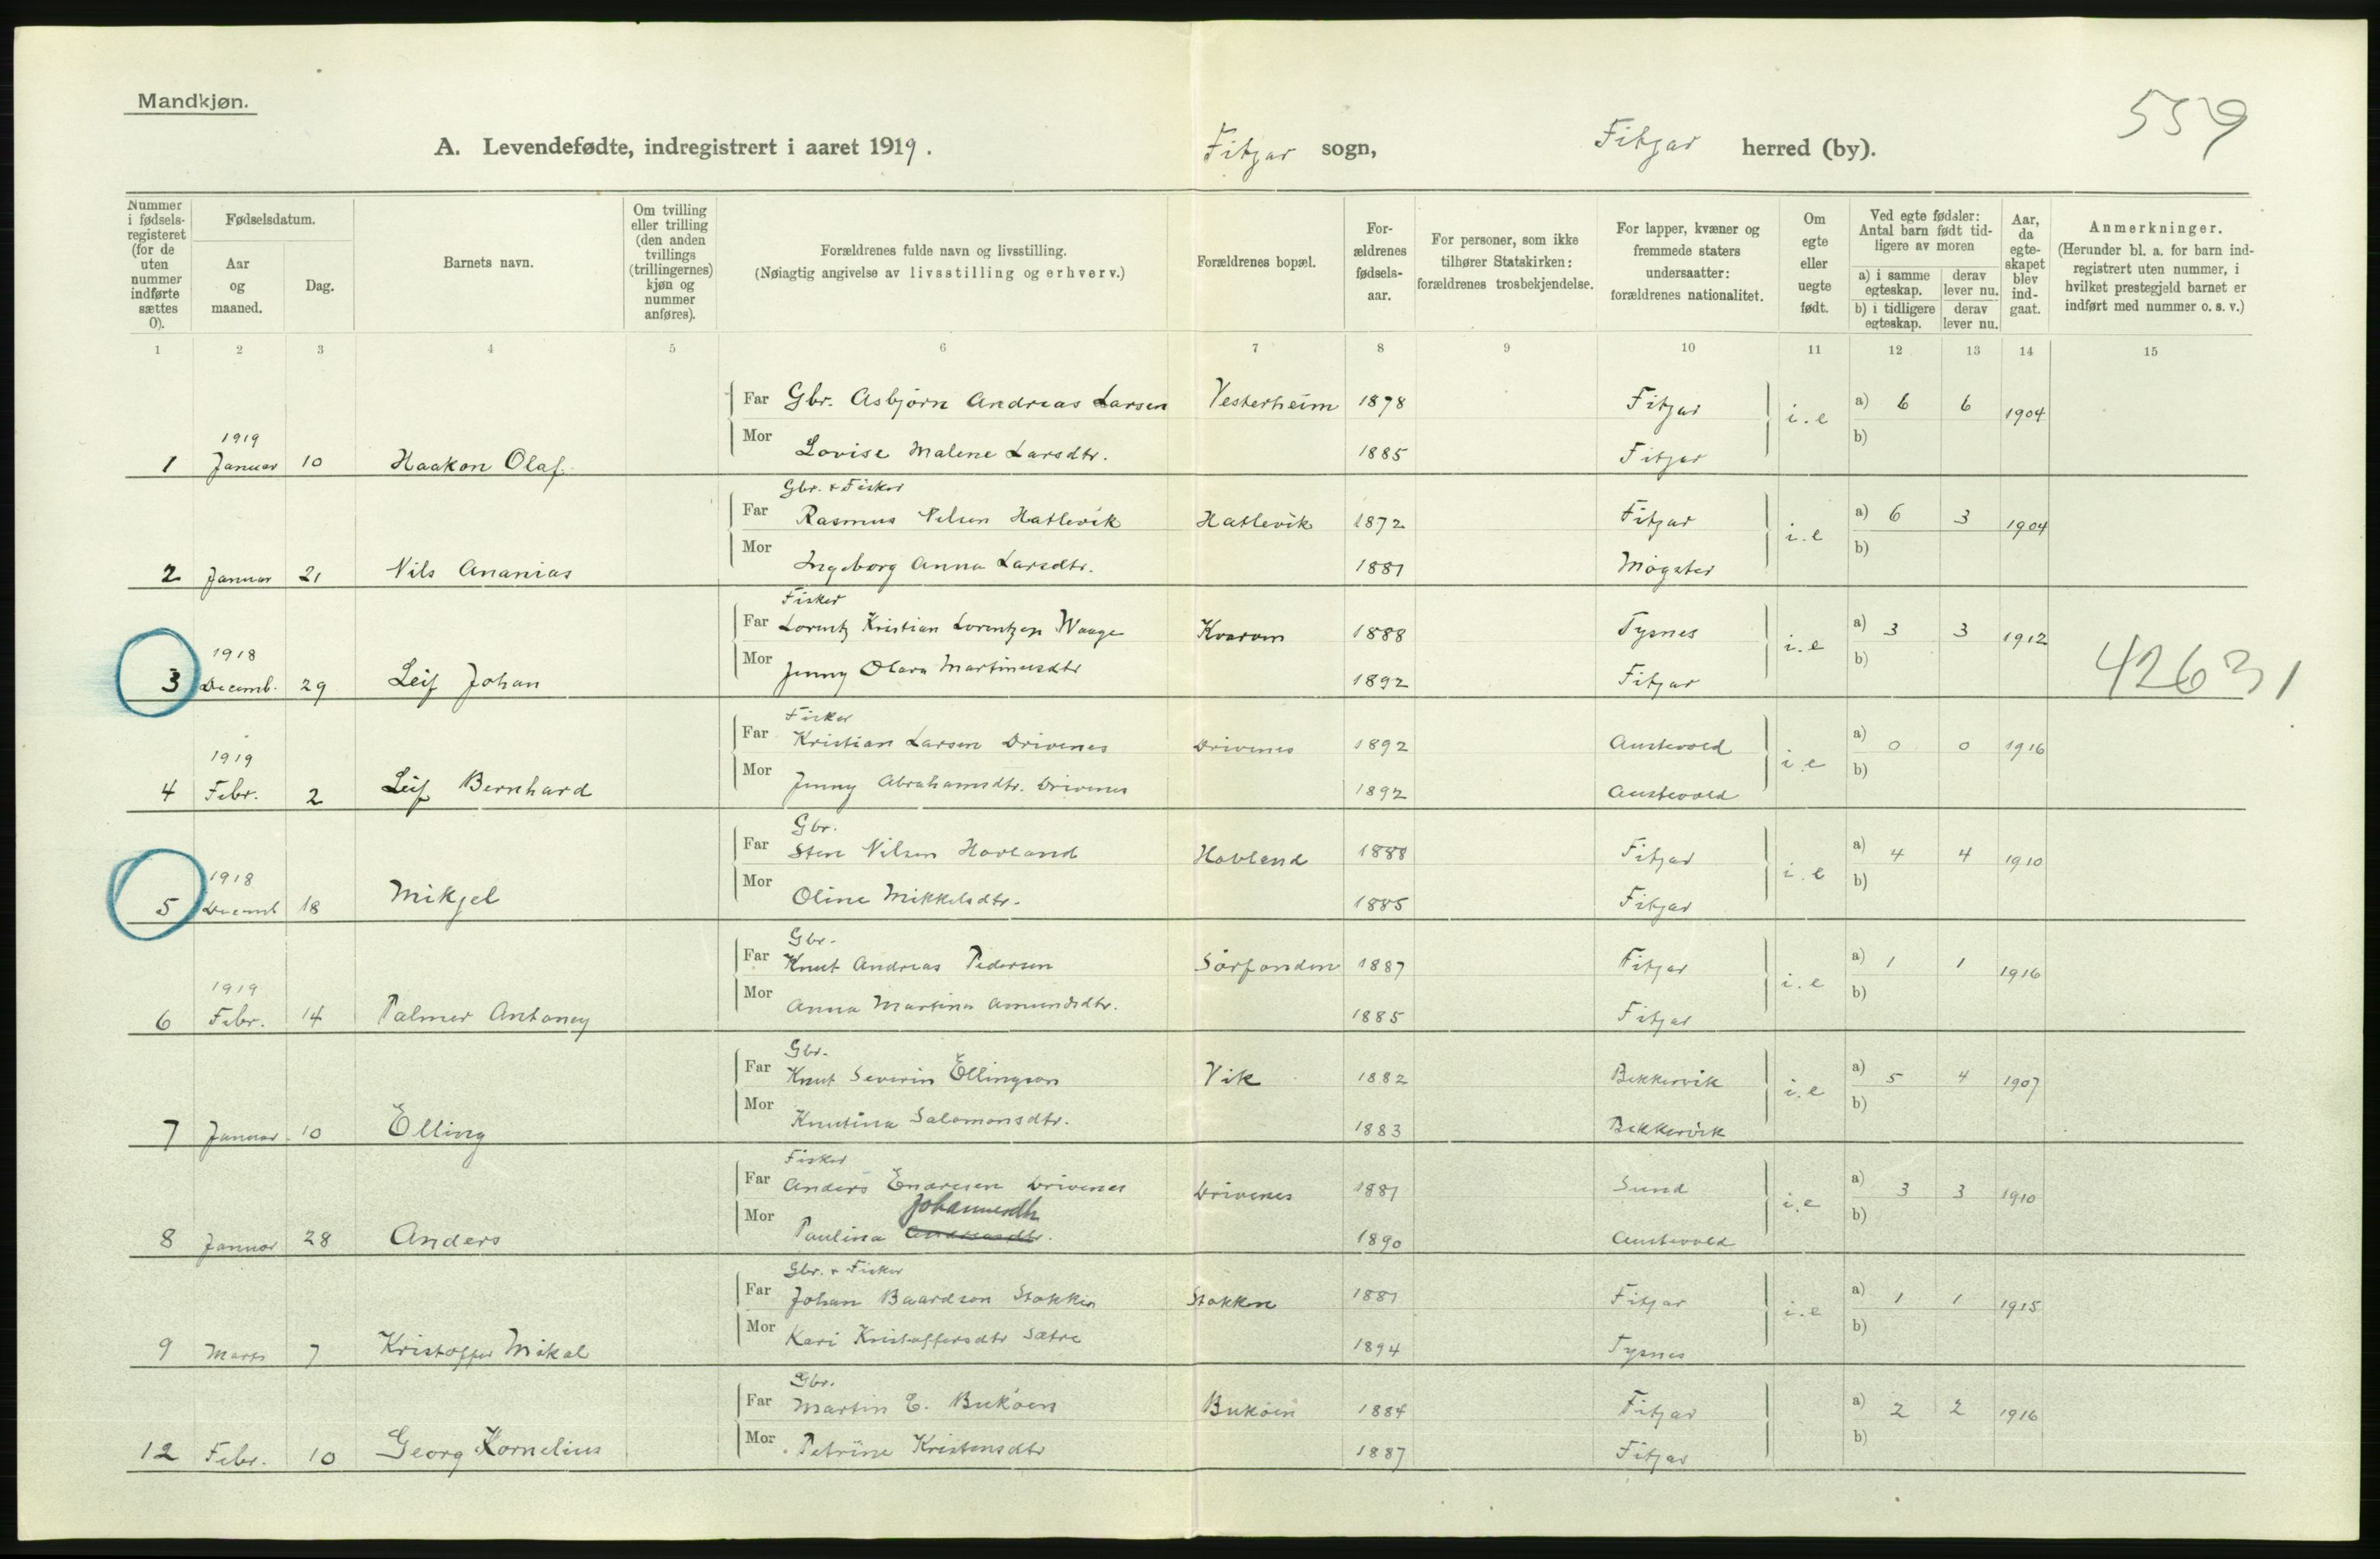 Mandkjøn.
559
A. Levendefødte, indregistrert i aaret 1919. Fitjar sogn, Fitjar herred (by).
Nummer i fødsels-registeret (for de uten nummer indførte sættes 0).
Fødselsdatum.
Aar og maaned.
Dag.
Barnets navn.
Om tvilling eller trilling (den anden tvillings (trillingernes) kjøn og nummer anføres).
Forældrenes fulde navn og livsstilling.
(Nøiagtig angivelse av livsstilling og erhverv.)
Forældrenes bopæl.
For-ældrenes fødsels-aar.
For personer, som ikke tilhører Statskirken: forældrenes trosbekjendelse.
For lapper, kvæner og fremmede staters undersaatter: forældrenes nationalitet.
Om egte eller uegte født.
Ved egte fødsler: Antal barn født tid-ligere av moren
a) i samme egteskap. derav lever nu.
b) i tidligere egteskap. derav lever nu.
Aar, da egte-skapet blev ind-gaat.
Anmerkninger.
(Herunder bl. a. for barn ind-registrert uten nummer, i hvilket prestegjeld barnet er indført med nummer o. s. v.)
1 2 3 4 5 6 7 8 9 10 11 12 13 14 15
Far Gbr. Asbjørn Andreas Larsen Vesterheim 1878 Fitjar i.e a) 6 6 1904
1919
1 Januar 10 Haakon Olaf. Mor Lovise Malene Larsdtr. 1885 Fitjar b)
Gbr. + Fisker
Far Rasmus Nilsen Hatlevik Hatlevik 1872 Fitjar i.e a) 6 3 1904
2 Januar 21 Nils Ananias Mor Ingeborg Anna Larsdtr. 1881 Møgster b)
Fisker
Far Lorentz Kristian Lorentzen Waage Kvarven 1888 Tysnes i.e a) 3 3 1912
1918
3 Decemb. 29 Leif Johan Mor Jenny Olava Martinusdtr 1892 Fitjar b) 42631
Fisker
Far Kristian Larsen Drivenes Drivenes 1892 Austevold i.e a) 0 0 1916
1919
4 Febr. 2 Leif Bernhard Mor Jenny Abrahamsdtr. Drivenes 1892 Austevold b)
Gbr.
Far Sten Nilsen Hovland Hovland 1888 Fitjar i.e a) 4 4 1910
1918
5 Decemb 18 Mikjel Mor Oline Mikkelsdtr. 1885 Fitjar b)
Gbr.
Far Knut Andreas Pedersen Sørfonden 1887 Fitjar i.e a) 1 1 1916
1919
6 Febr. 14 Palmer Antoney Mor Anna Martina Amundsdtr. 1885 Fitjar b)
Gbr.
Far Knut Severin Ellingson Vik 1882 Bekkervik i.e a) 5 4 1907
7 Januar 10 Elling Mor Knutina Salamonsdtr. 1883 Bekkervik b)
Fisker
Far Anders Endresen Drivenes Drivenes 1881 Sund i.e a) 3 3 1910
Johannesdtr
8 Januar 28 Anders Mor Paulina Andreasdtr. 1890 Austevold b)
Gbr. + Fisker
Far Johan Baardson Stokken Stokken 1881 Fitjar i.e a) 1 1 1915
9 Marts 7 Kristoffer Mikal Mor Kari Kristoffersdtr Sætre 1894 Tysnes b)
Gbr.
Far Martin E. Bukøen Bukøen 1884 Fitjar a) 2 2 1916
12 Febr. 10 Georg Kornelius Mor Petrine Kristensdtr 1887 Fitjar b)